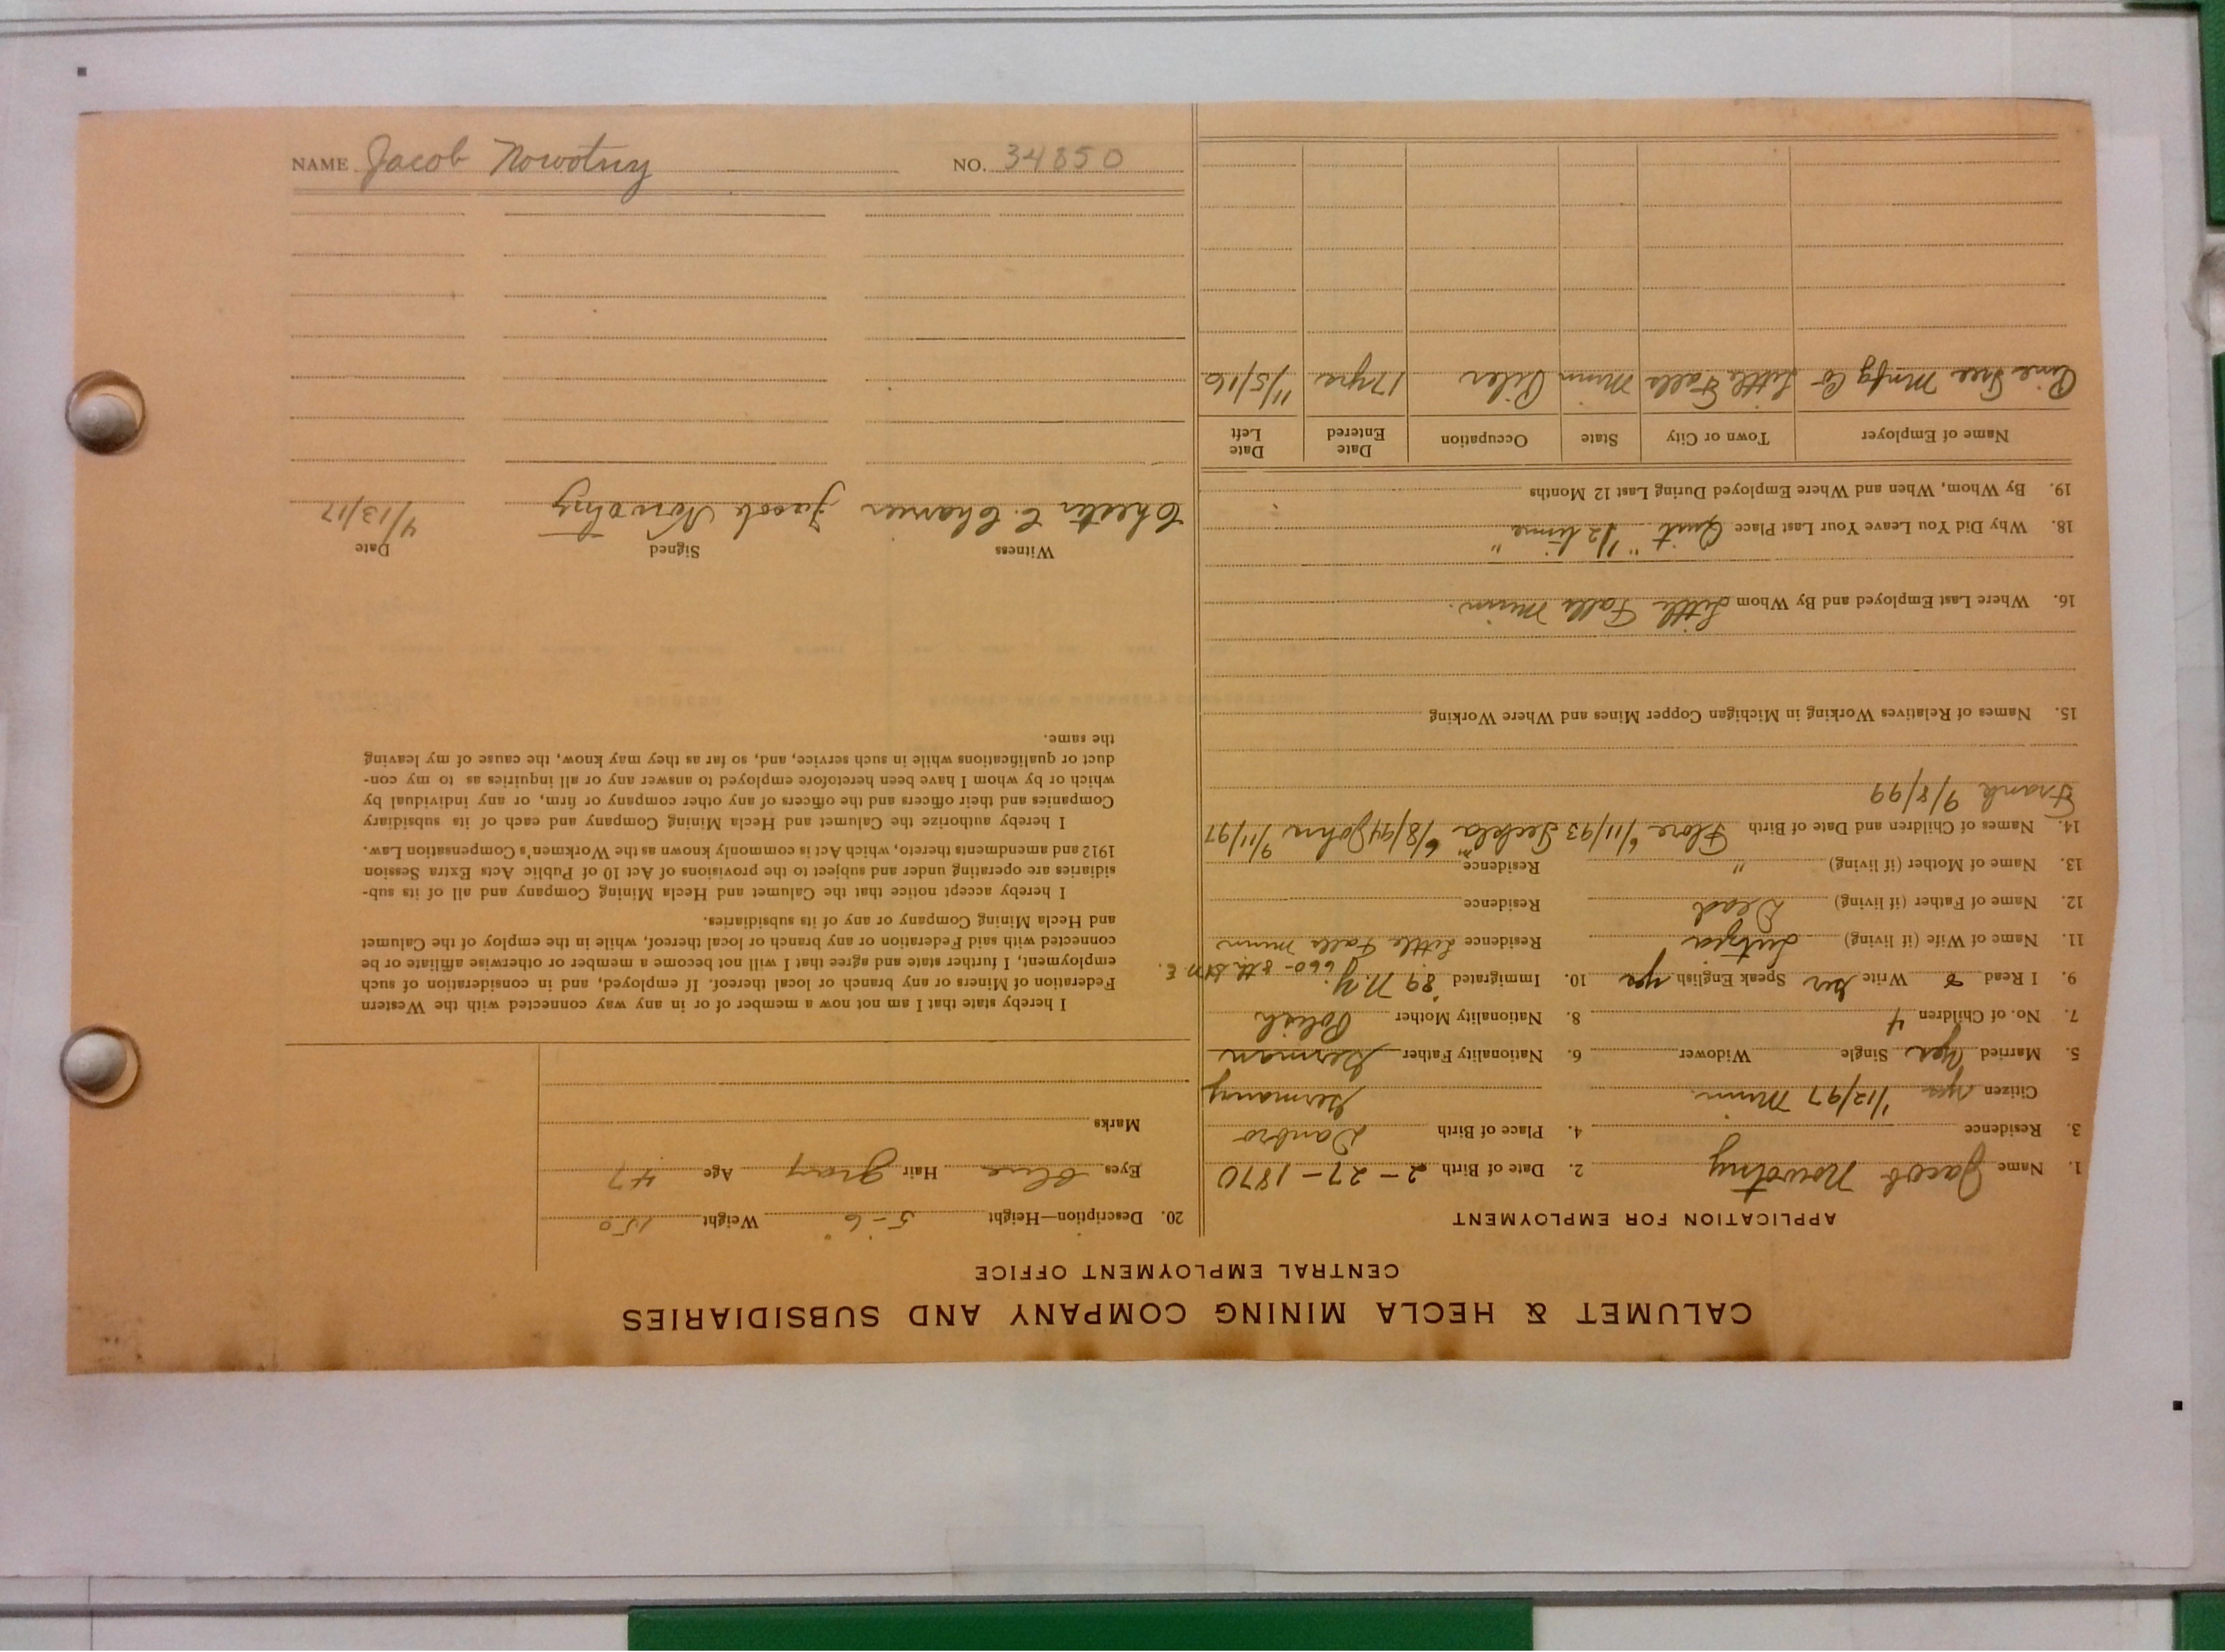 CALUMET & HECLA MINING COMPANY AND SUBSIDIARIES
CENTRAL EMPLOYMENT OFFICE
APPLICATION FOR EMPLOYMENT
1. Name Jacob Nowotny 2. Date of Birth 2-27-1870
3. Residence 4. Place of Birth
Citizen yes 1/12/97 Minn. Germany
5. Married yes Single Widower 6. Nationality Father German
7. No. of Children 4 8. Nationality Mother Polish
9. I Read & Write Ger Speak English yes 10. Immigrated '89 N.Y.
660-8th St N.E.
11. Name of Wife (if living) Residence Little Falls Minn
12. Name of Father (if living) Dead Residence
13. Name of Mother (if living) " Residence
14. Names of Children and Date of Birth Flore 6/11/93 Teckla 6/8/94 John 9/11/97
Frank 9/8/99
15. Names of Relatives Working in Michigan Copper Mines and Where Working
16. Where Last Employed and By Whom Little Falls Minn.
18. Why Did You Leave Your Last Place Quit "1/2 time"
19. By Whom, When and Where Employed During Last 12 Months
Name of Employer Town or City State Occupation Date Entered Date Left
Pine Tree Mnfg Co Little Falls Minn Piler 17 yrs 11/5/16
20. Description—Height 5'-6" Weight 150
Eyes blue Hair gray Age 47
Marks
I hereby state that I am not now a member of or in any way connected with the Western
Federation of Miners or any branch or local thereof. If employed, and in consideration of such
employment, I further state and agree that I will not become a member or otherwise affiliate or be
connected with said Federation or any branch or local thereof, while in the employ of the Calumet
and Hecla Mining Company or any of its subsidiaries.
I hereby accept notice that the Calumet and Hecla Mining Company and all of its sub-
sidiaries are operating under and subject to the provisions of Act 10 of Public Acts Extra Session
1912 and amendments thereto, which Act is commonly known as the Workmen's Compensation Law.
I hereby authorize the Calumet and Hecla Mining Company and each of its subsidiary
Companies and their officers and the officers of any other company or firm, or any individual by
which or by whom I have been heretofore employed to answer any or all inquiries as to my con-
duct or qualifications while in such service, and, so far as they may know, the cause of my leaving
the same.
Witness Signed Date
Jacob Nowotny 4/13/17
NAME Jacob Nowotny NO. 34850